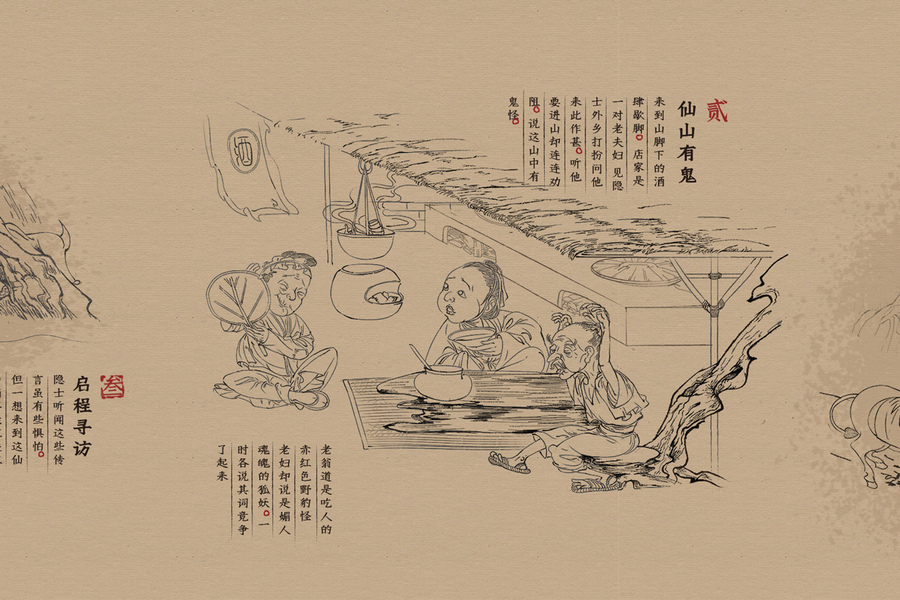 贰
仙山有鬼
来到山脚下的酒
肆歇脚。店家是
一对老夫妇见隐
士外乡打扮问他
来此作甚。听他
要进山却连连劝
阻。说这山中有
鬼怪。
酒
老翁道是吃人的
赤红色野豹怪
老妇却说是媚人
魂魄的狐妖。一
时各说其词竞争
了起来
叁
启程寻访
隐士听闻这些传
言虽有些惧怕。
但一想来到这仙